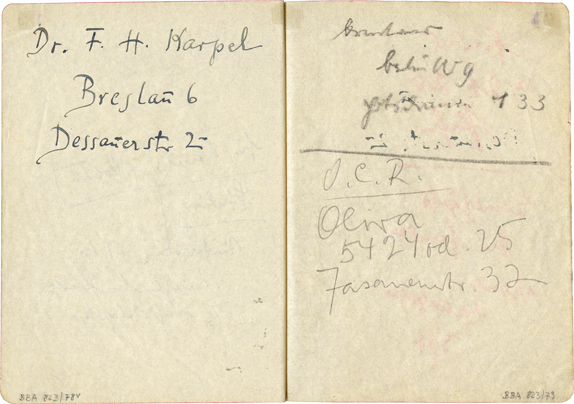 Dr. F. H. Karpel
Breslau 6
Dessauerstr. 2
BBA 823/78v
berlin W9
133
O.C.R.
Oliva
5424 od. 25
Fasanenstr. 32
BBA 823/79